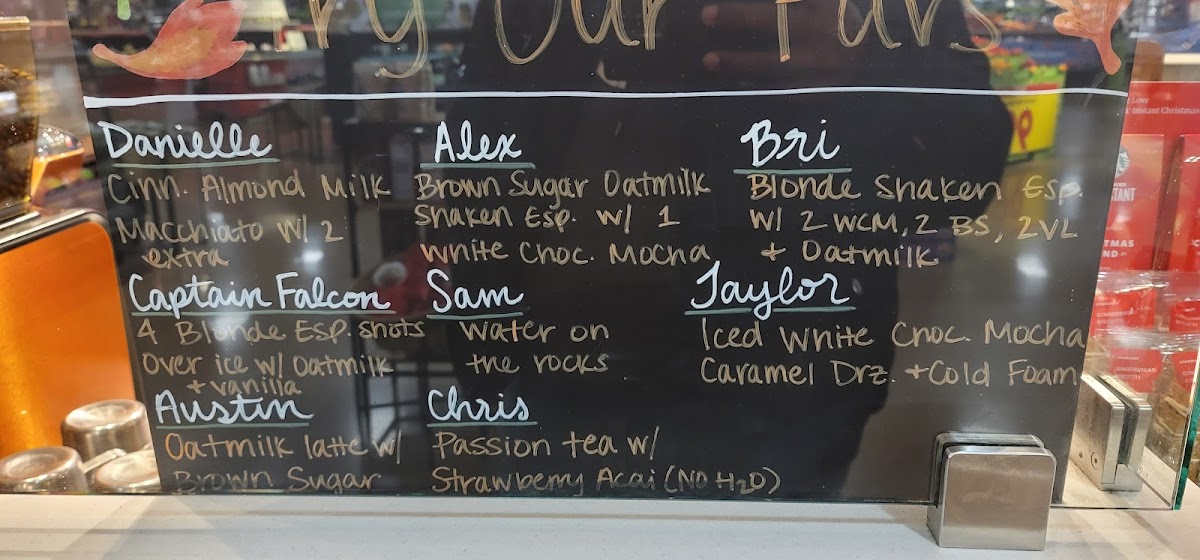 Try Our Favs
Danielle
Cinn. Almond Milk
Macchiato w/ 2
extra
Alex
Brown Sugar Oatmilk
Shaken Esp. w/ 1
White Choc. Mocha
Bri
Blonde Shaken Esp.
w/ 2 WCM, 2 BS, 2VL
+ Oatmilk
Captain Falcon
4 Blonde Esp. shots
over ice w/ oatmilk
+ vanilla
Sam
Water on
the rocks
Taylor
Iced White Choc. Mocha
Caramel Drz. + Cold Foam
Austin
Oatmilk latte w/
Brown Sugar
Chris
Passion tea w/
Strawberry Acai (NO H2O)